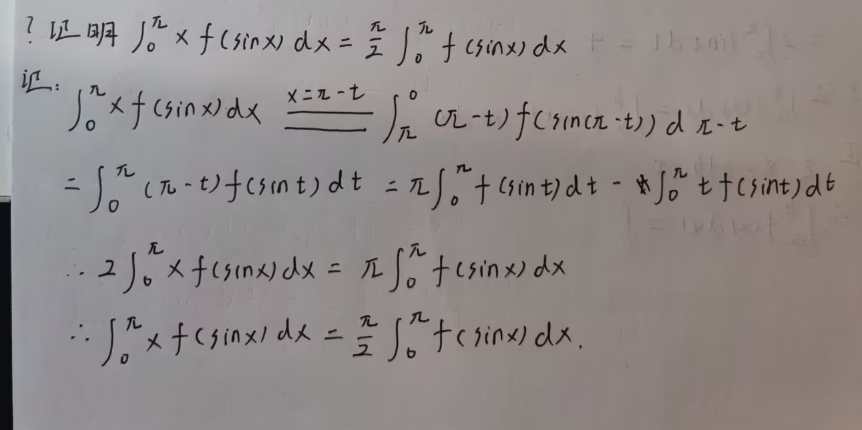 ? 证明 ∫₀^π x f(sinx) dx = π/2 ∫₀^π f(sinx) dx
证: ∫₀^π x f(sinx) dx \xlongequal{x=π-t} ∫_π^0 (π-t) f(sin(π-t)) d π-t
= ∫₀^π (π-t) f(sint) dt = π∫₀^π f(sint) dt - ∫₀^π t f(sint) dt
∴ 2∫₀^π x f(sinx) dx = π∫₀^π f(sinx) dx
∴ ∫₀^π x f(sinx) dx = π/2 ∫₀^π f(sinx) dx.